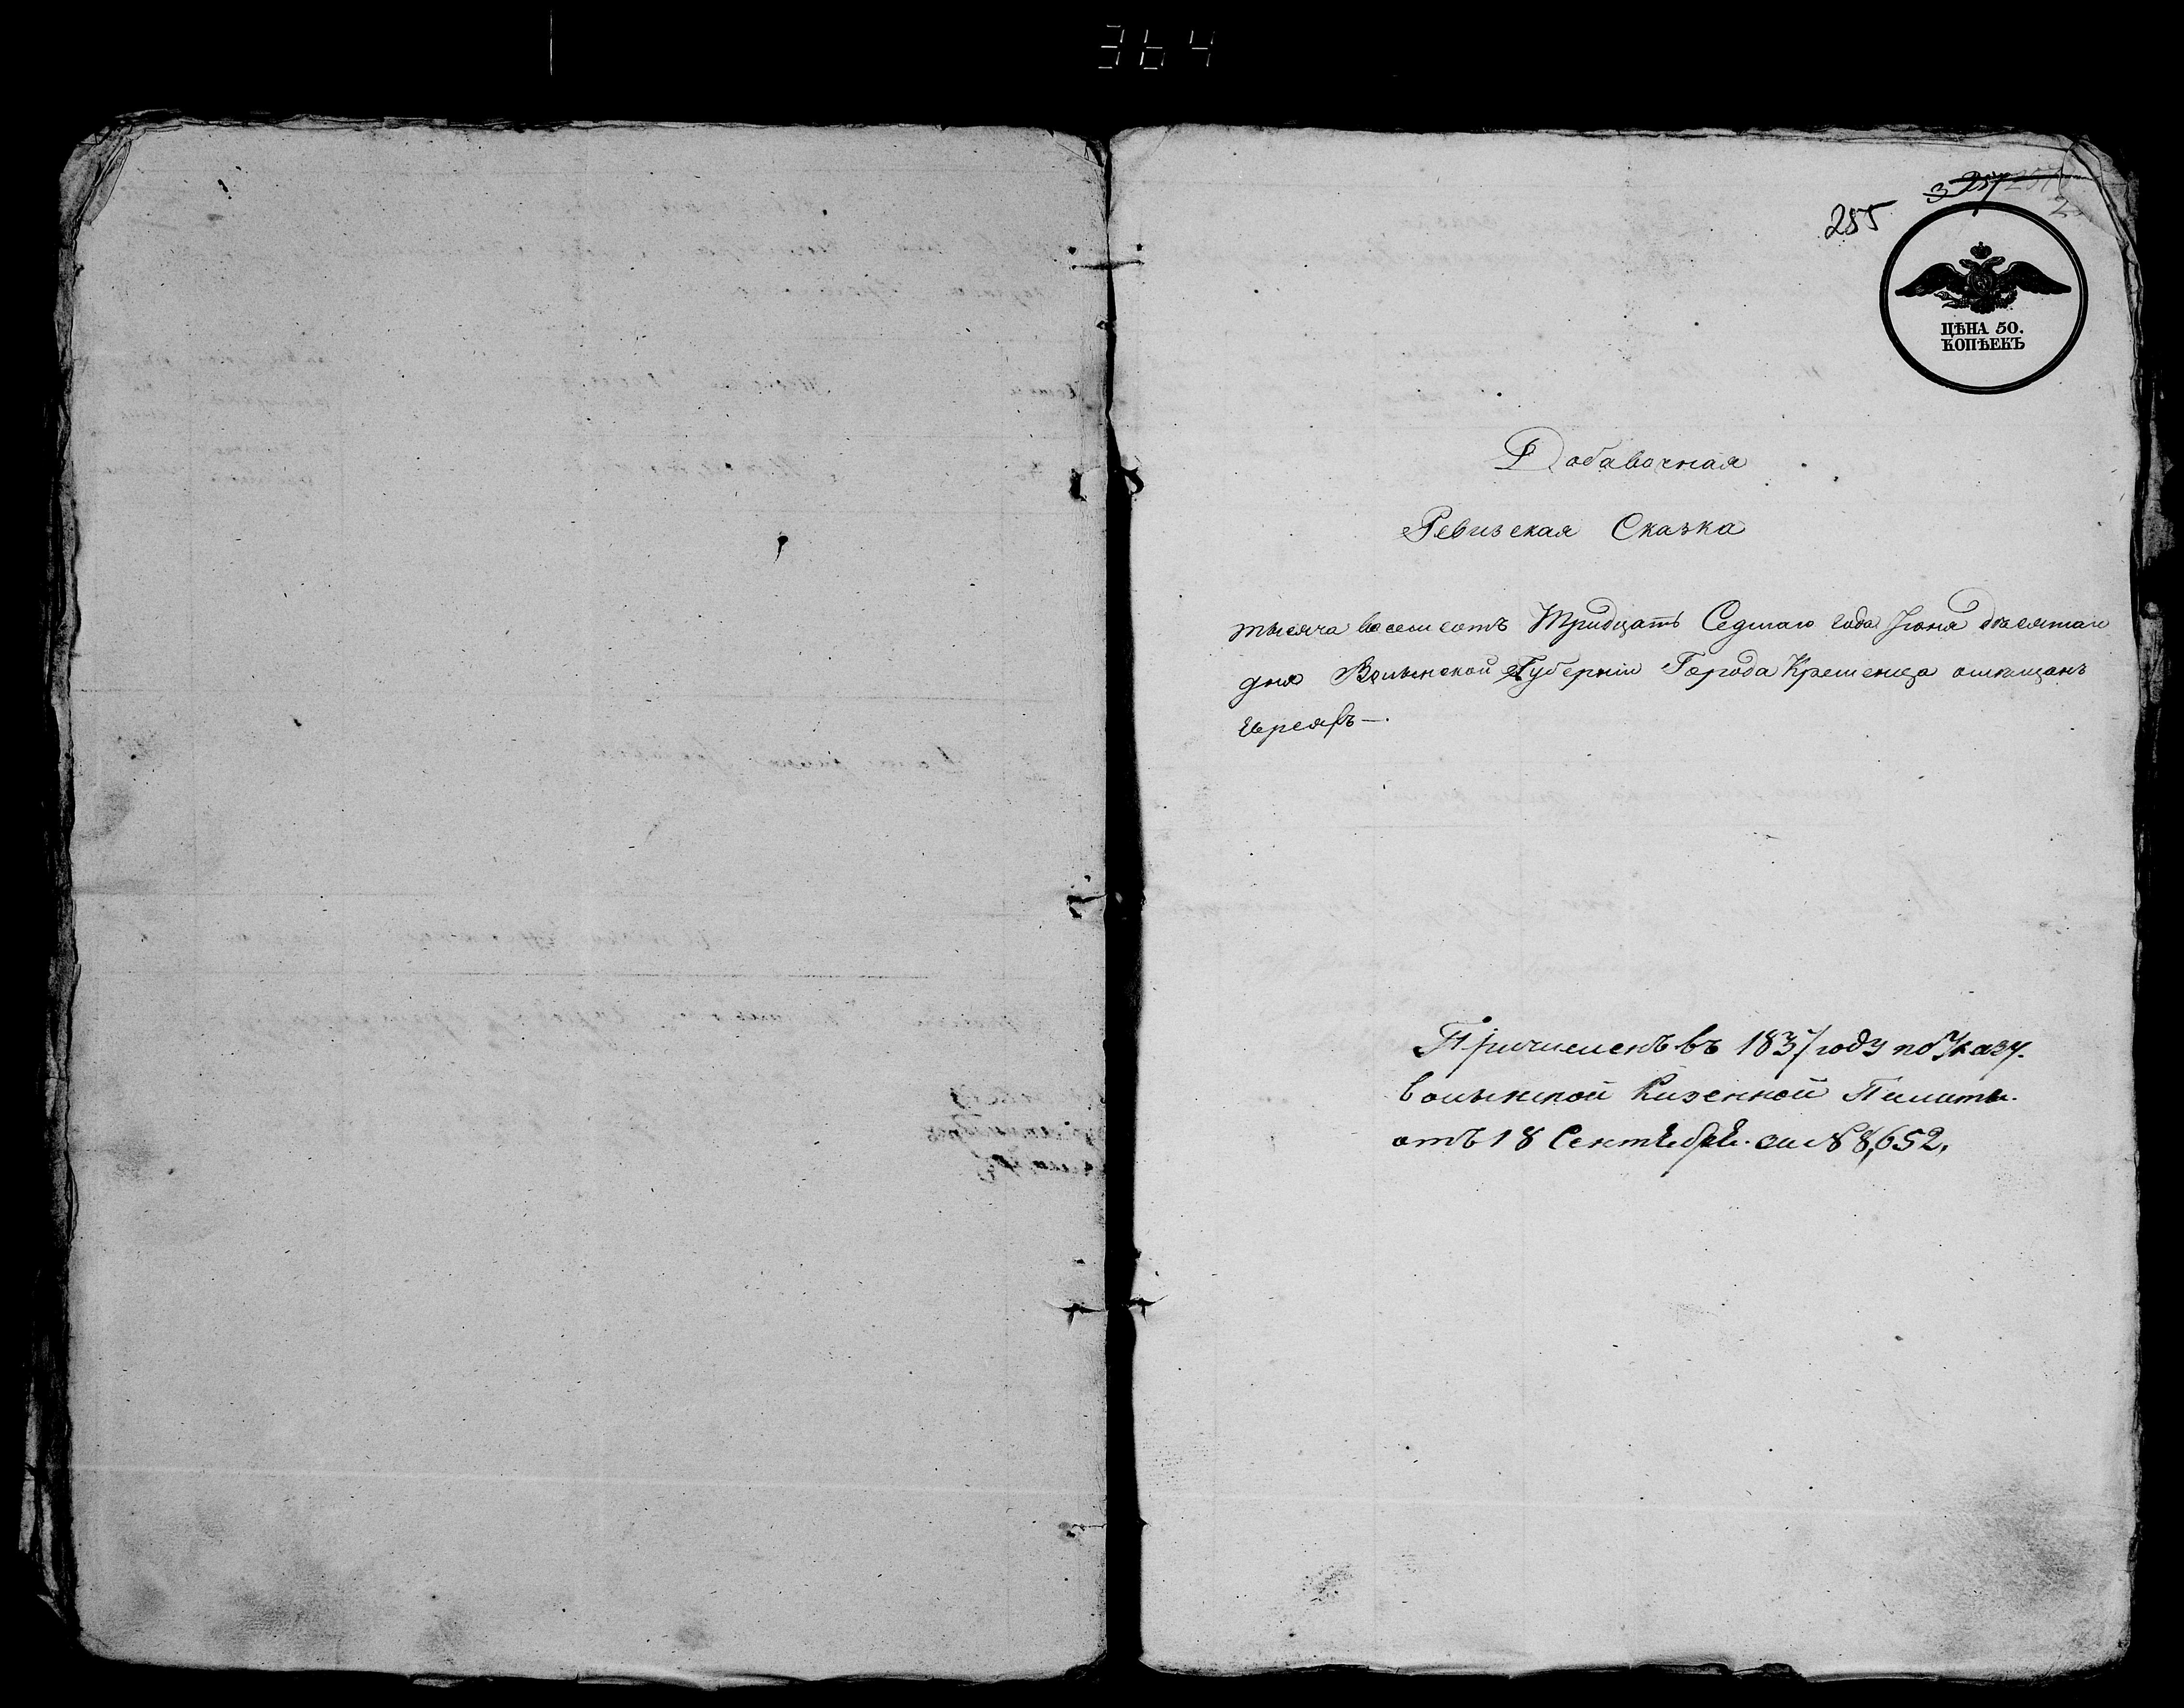 364
285
ЦѢНА 50.
КОПѢЕКЪ
Добавочная
Ревизская Сказка
тысяча восемсотъ Тридцать Седмаго года Іюня десятаго
дня Волынской Губерніи Города Кременца омѣщанъ
Евреяхъ—.
Причисленъ въ 1837 году по Указу.
Волынской Казенной Палаты.
отъ 18 Сентября. за № 8,652.